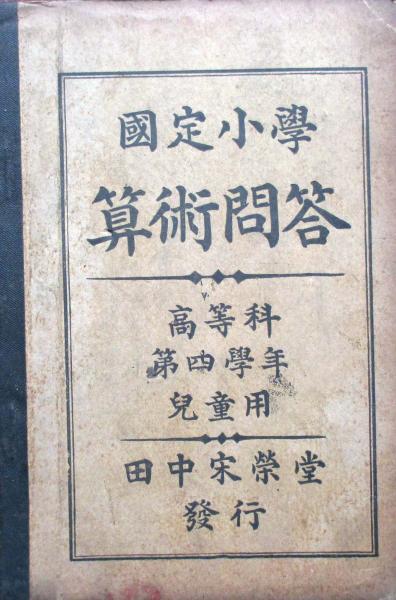 國定小學
算術問答
高等科
第四學年
兒童用
田中宋榮堂
發行